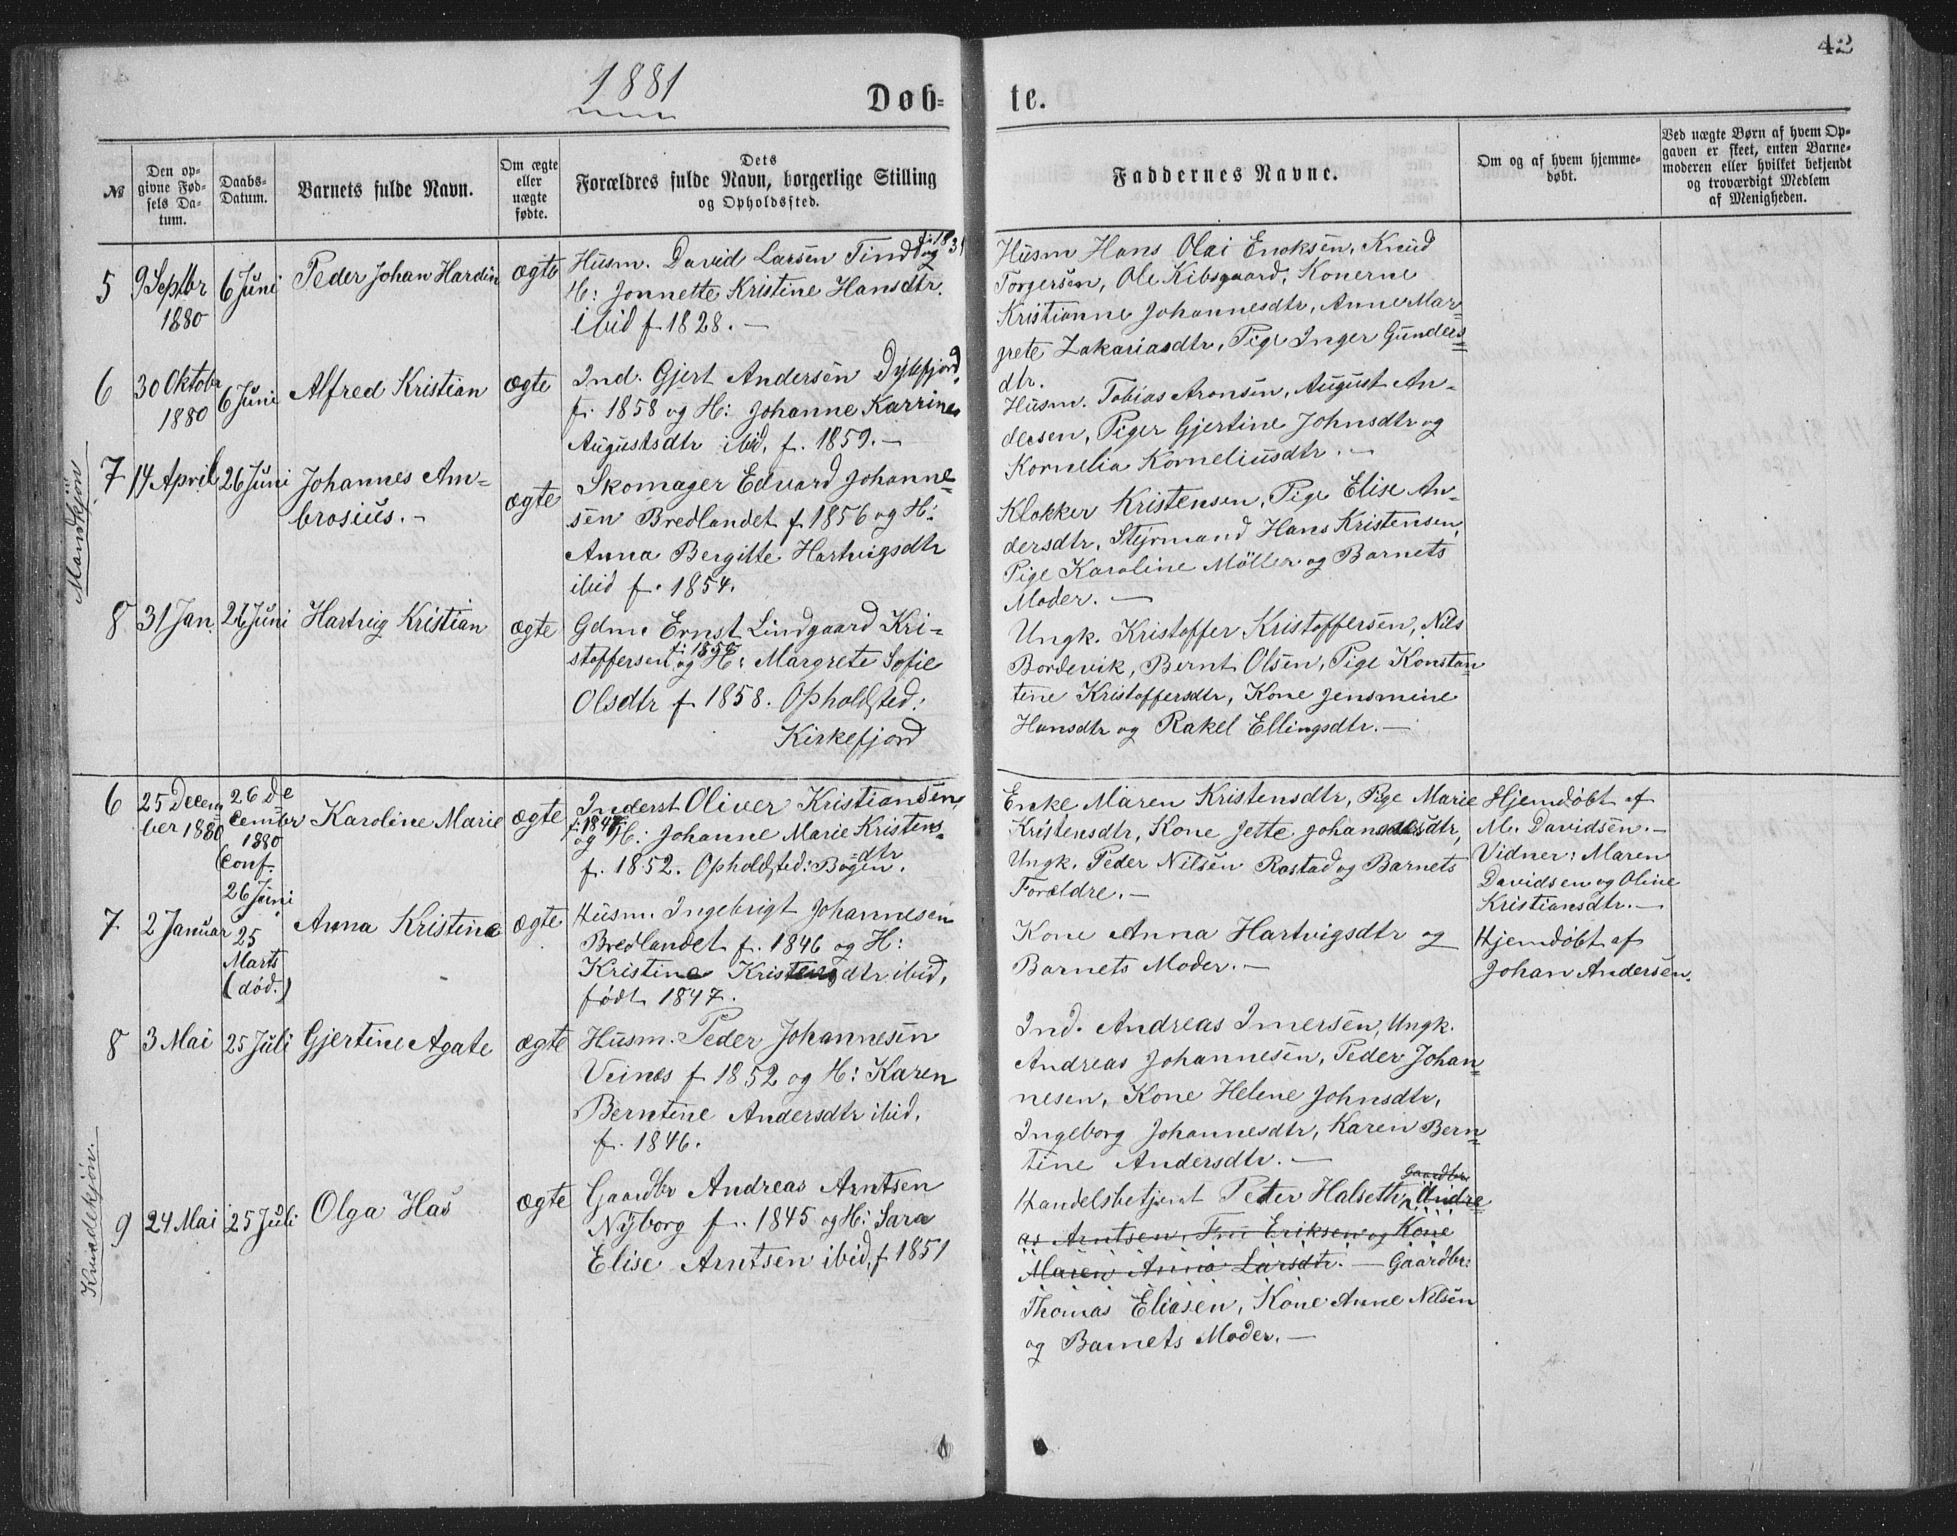 42
1881
Døb-
te.
№
Den op-
givne Fød-
sels Da-
tum.
Daabs-
Datum.
Barnets fulde Navn.
Om ægte
eller
uægte
fødte.
Dets
Forældres fulde Navn, borgerlige Stilling
og Opholdssted.
Faddernes Navne.
Om og af hvem hjemme-
døbt.
Ved uægte Børn af hvem Op-
gaven er skeet, enten Barne-
moderen eller hvilket bekjendt
og troværdigt Medlem
af Menigheden.
Mandkjøn
5
9 Septbr
1880
6 Juni
Peder Johan Hardin
ægte
Husm. David Larsen Tind f. 183
og
H: Jonnette Kristine Hansdtr.
ibid f 1828. —
Husm Hans Olai Enoksen, Knud
Torgersen, Ole Kibsgaard, Konerne
Kristianne Johannesdtr, Anne Mar-
grete Zakariasdtr, Pige Inger Gunders-
dtr.
6
30 Oktobr
1880
6 Juni
Alfred Kristian
ægte
Ind. Gjert Andersen Dybfjord
f. 1858 og H: Johanne Karrine
Augustsdtr ibid. f. 1859. —
Husm. Tobias Aronsen, August An-
dersen, Piger Gjertine Johnsdtr og
Kornelia Korneliusdtr. —
7
14 April
26 Juni
Johannes Am-
brosius. —
ægte
Skomager Edvard Johanne-
sen Bredlandet f 1856 og H:
Anna Bergitte Hartvigsdtr
ibid f. 1854.
Klokker Kristensen, Pige Elise An-
dersdtr, Styrmand Hans Kristensen,
Pige Karoline Möller og Barnets
Moder. —
8
31 Jan.
26 Juni
Hartvig Kristian
ægte
Gdm. Ernst Lindgaard Kri-
stoffersen f. 1850 og H: Margrete Sofie
Olsdtr f 1858. Opholdsted:
Kirkefjord
Ungk. Kristoffer Kristoffersen, Nils
Bordevik, Bernt Olsen, Pige Konstan
tine Kristoffersdtr, Kone Jensmine
Hansdtr og Rakel Ellingsdtr. —
Kvindekjøn.
6
25 Decem
ber 1880
26 De
cember
1880
(Conf.
26 Juni
Karoline Marie
ægte
Inderst Oliver Kristiansen,
f. 1847
og H: Johanne Marie Kristens-
dtr
f. 1852. Opholdsted: Bogen.
Enke Maren Kristensdtr, Pige Marie
Kristensdtr, Kone Jette Johannesdtr,
Ungk. Peder Nilsen Rastad og Barnets
Forældre. —
Hjemdøbt af
M. Davidsen. —
Vidner: Maren
Davidsen og Oline
Kristiansdtr. —
7
2 Januar
25
Marts
(død.)
Anna Kristine
ægte
Husm. Ingebrigt Johannesen
Bredlandet f. 1846 og H:
Kristine Kristensdtr ibid,
født 1847.
Kone Anna Hartvigsdtr og
Barnets Moder. —
Hjemdøbt af
Johan Andersen.
8
3 Mai
25 Juli
Gjertine Agate
ægte
Husm. Peder Johannesen
Veines f 1852 og H: Karen
Berntine Andersdtr ibid.
f. 1846.
Ind. Andreas Imersen, Ungk.
Andreas Johannesen, Peder Johan-
nesen, Kone Helene Johnsdtr,
Ingeborg Johannesdtr, Karen Bern-
tine Andersdtr. —
9
24 Mai
25 Juli
Olga Has
ægte
Gaardbr Andreas Arntsen
Nyborg f. 1845 og H: Sara
Elise Arntsen ibid, f 1851
Gaardbr
Handelsbetjent Peter Halseth, Andre-
as Arntsen, Fru Eriksen og Kone
Maren Anna Larsdtr. — Gaardbr:
Thomas Eliasen, Kone Anne Nilsen
og Barnets Moder. —